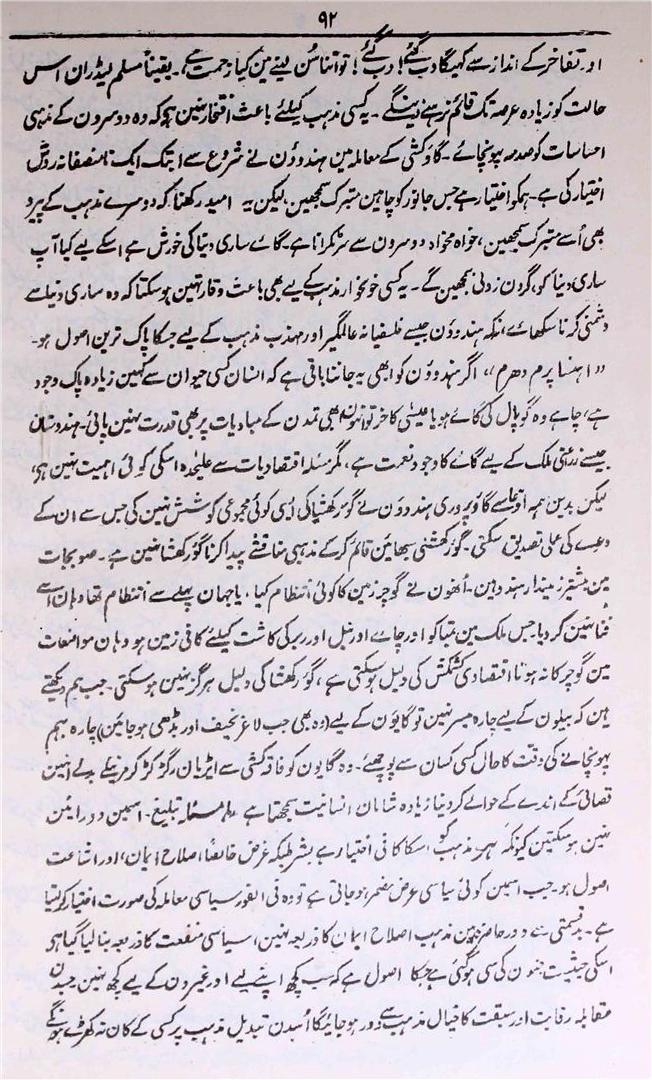 ۹۲
اور تفاخر کے انداز سے کہیگا دب گئے! دب گئے! تو اتنا سُن لینے مین کیا زحمت ہے، یقیناً مسلم لیڈران اس
حالت کو زیادہ عرصہ تک قائم نہ رہنے دینگے۔ یہ کسی مذہب کیلئے باعث افتخار نہین ہے کہ وہ دوسرون کے مذہبی
احساسات کو صدمہ پہونچائے۔ گاؤکشی کے معاملہ مین ہندوؤن نے شروع سے ابتک ایک نامنصفانہ روش
اختیار کی ہے۔ ہمکو اختیار ہے جس جانور کو چاہین متبرک سمجھین، لیکن یہ امید رکھنا کہ دوسرے مذہب کے پیرو
بھی اُسے متبرک سمجھین، خواہ مخواہ دوسرون سے سر ٹکرانا ہے۔ گائے ساری دنیا کی خورش ہے اسکے لیے کیا آپ
ساری دنیا کو، گردن زدنی سمجھین گے۔ یہ کسی خونخوار مذہب کے لیے بھی باعث وقار نہین ہو سکتا کہ وہ ساری دنیا سے
دشمنی کرنا سکھائے، نکہ ہندوؤن جیسے فلسفیانہ عالمگیر اور مہذب مذہب کے لیے جسکا پاک ترین اصول ہو۔
”اہنسا پرم دھرم“، اگر ہندوؤن کو ابھی یہ جاننا باقی ہے کہ انسان کسی حیوان سے کہین زیادہ پاک وجود
ہے، چاہے وہ گوپال کی گائے ہو یا عیسٰی کا خر تو انہون نے ابھی تمدن کے مبادیات پر بھی قدرت نہین پائی۔ ہندوستان
جیسے زراعتی ملک کے لیے گائے کا وجود نعمت ہے، مگر مسئلہ اقتصادیات سے علیحدہ اسکی کوئی اہمیت نہین ہی،
لیکن بدین ہمہ ادعاے گاؤ پروری ہندوؤن نے گؤرکھشا کی ایسی کوئی مجموعی کوشش نہین کی جس سے ان کے
دعوے کی عملی تصدیق سکتی۔ گؤرکھشنی سبھائین قائم کر کے مذہبی مناقشے پیدا کرنا گؤرکھشا نہین ہے۔ صوبجات
مین بیشتر زمیندار ہندو ہین۔ اُنھون نے گوچر زمین کا کوئی انتظام کیا، یا جہان پہلے سے انتظام تھا وہان اسے
فنا نہین کر دیا۔ جس ملک مین تمباکو اور چاے اور نیل اور ربر کی کاشت کیلئے کافی زمین ہو وہان مواضعات
مین گوچر کا نہ ہونا اقتصادی کشمکش کی دلیل ہو سکتی ہے، گؤرکھشا کی دلیل ہرگز نہین ہو سکتی۔ جب ہم دیکھتے
ہین کہ بیلون کے لیے چارہ میسر نہین تو گایون کے لیے (وہ بھی جب لاغر نحیف اور بڈھی ہو جائین) چارہ بہم
پہونچانے کی دقت کا حال کسی کسان سے پوچھئے۔ وہ گایون کو فاقہ کشی سے ایڑیان رگڑ رگڑ کر مرنیکے بدلے انہین
قصائی کے اندے کے حوالے کر دینا زیادہ شایان انسانیت سمجھتا ہے۔ رہا مسئلہ تبلیغ۔ اسمین دو رائین
نہین ہو سکتین کیونکہ ہر مذہب کو اسکا کافی اختیار ہے بشرطیکہ غرض خالصاً اصلاح ایمان، اور اشاعت
اصول ہو۔ جب اسمین کوئی سیاسی غرض مضمر ہو جاتی ہے تو وہ فی الفور سیاسی معاملہ کی صورت اختیار کر لیتا
ہے۔ بدقسمتی سے دور حاضرہ مین مذہب اصلاح ایمان کا ذریعہ نہین، سیاسی منفعت کا ذریعہ بنا لیا گیا ہو
اسکی حیثیت جنون کی سی ہو گئی ہے جسکا اصول ہے کہ سب کچھ اپنے لیے اور غیرون کے لیے کچھ نہین جسدن
مقابلہ رقابت اور سبقت کا خیال مذہب سے دور ہو جائیگا اُسدن تبدیل مذہب پر کسی کے کان نہ کھڑے ہونگے